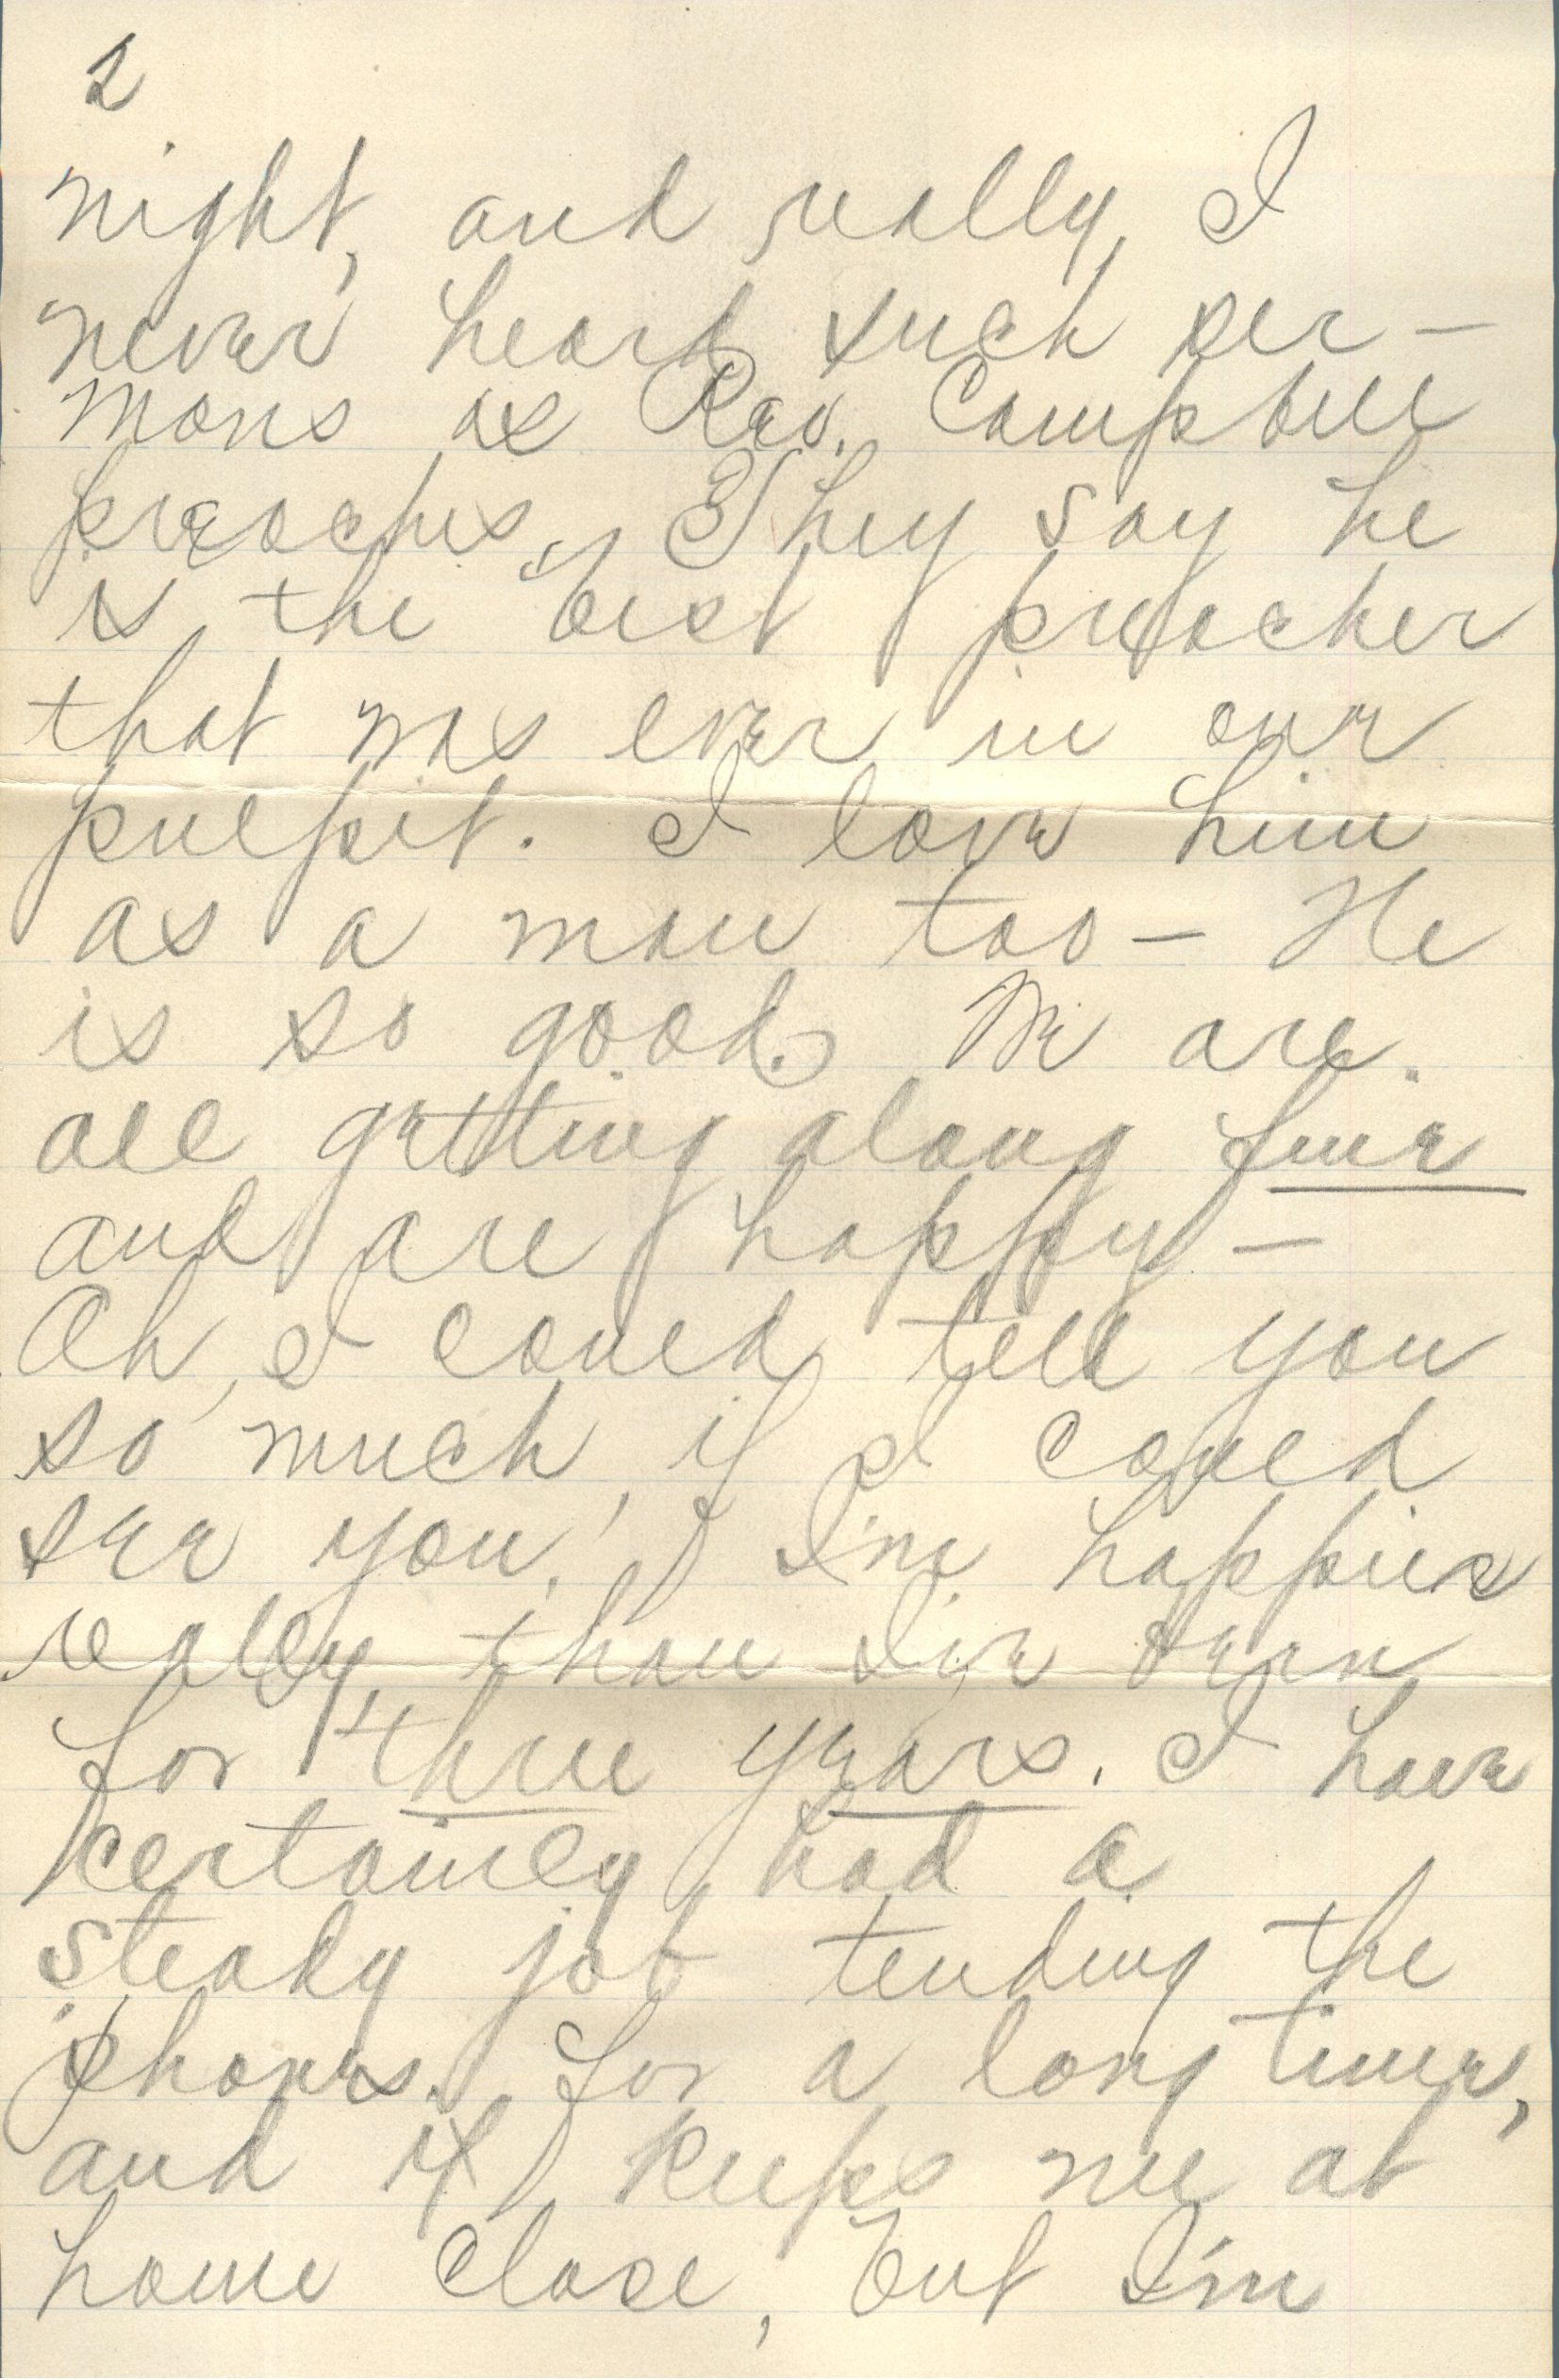 2
night, and really, I
never heard such ser-
mons as Rev. Campbell
preaches. They say he
is the best preacher
that was ever in our
pulpit. I love him
as a man too - He
is so good. We are
all getting along fine
and are happy -
Oh, I could tell you
so much, if I could
see you! I'm happier
really, than I've been
for three years. I have
certainly had a
steady job tending the
phones for a long time,
and it keeps me at
home close, but I'm